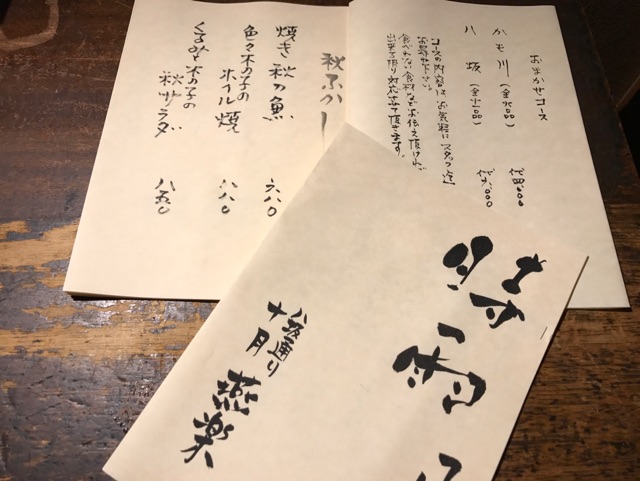 おまかせコース
かも川（全八品）
八坂（全十品）
コースの内容は、お気軽にスタッフ迄
お尋ね下さい。
食べれない食材などお伝え頂ければ
出来る限り対応させて頂きます。
焼き秋刀魚 六八〇
色々木の子の
ホイル焼 八八〇
くるみと木の子の
秋サラダ 八五〇
時雨
八坂通り
十月 燕楽